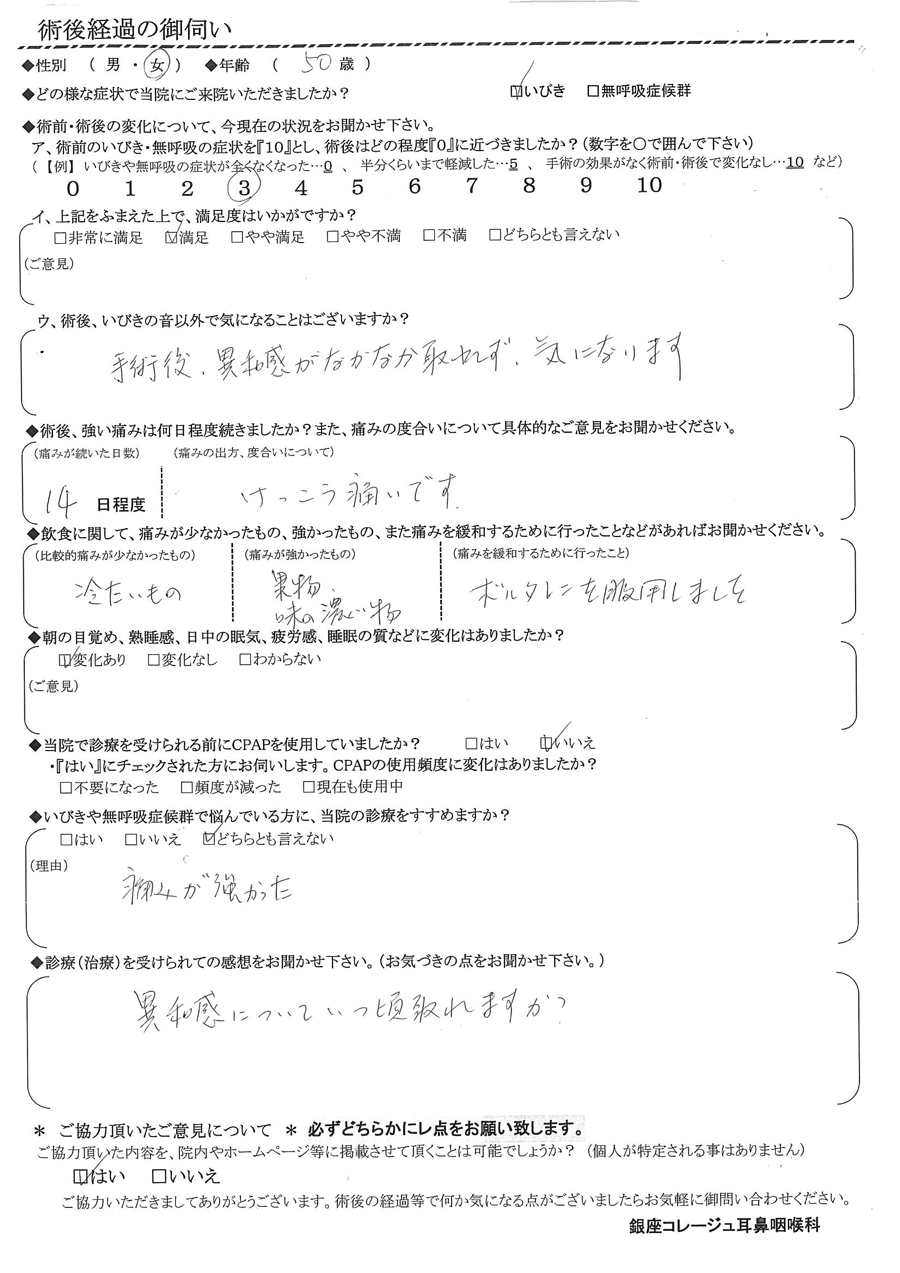 術後経過の御伺い
◆性別 ( 男 ・ 女 ) ◆年齢 ( 50 歳 )
◆どの様な症状で当院にご来院いただきましたか? ☑いびき □無呼吸症候群
◆術前・術後の変化について、今現在の状況をお聞かせ下さい。
ア、術前のいびき・無呼吸の症状を『10』とし、術後はどの程度『0』に近づきましたか?(数字を〇で囲んで下さい)
(【例】 いびきや無呼吸の症状が全くなくなった…0 、 半分くらいまで軽減した…5 、 手術の効果がなく術前・術後で変化なし…10 など)
0 1 2 3 4 5 6 7 8 9 10
イ、上記をふまえた上で、満足度はいかがですか?
□非常に満足 ☑満足 □やや満足 □やや不満 □不満 □どちらとも言えない
(ご意見)
ウ、術後、いびきの音以外で気になることはございますか?
手術後、異和感がなかなか取れず、気になります
◆術後、強い痛みは何日程度続きましたか?また、痛みの度合いについて具体的なご意見をお聞かせください。
(痛みが続いた日数) (痛みの出方、度合いについて)
14 日程度 けっこう痛いです
◆飲食に関して、痛みが少なかったもの、強かったもの、また痛みを緩和するために行ったことなどがあればお聞かせください。
(比較的痛みが少なかったもの) (痛みが強かったもの) (痛みを緩和するために行ったこと)
冷たいもの 果物、 ボルタレンを服用しました
味の濃い物
◆朝の目覚め、熟睡感、日中の眠気、疲労感、睡眠の質などに変化はありましたか?
☑変化あり □変化なし □わからない
(ご意見)
◆当院で診療を受けられる前にCPAPを使用していましたか? □はい ☑いいえ
・『はい』にチェックされた方にお伺いします。CPAPの使用頻度に変化はありましたか?
□不要になった □頻度が減った □現在も使用中
◆いびきや無呼吸症候群で悩んでいる方に、当院の診療をすすめますか?
□はい □いいえ ☑どちらとも言えない
(理由)
痛みが強かった
◆診療(治療)を受けられての感想をお聞かせ下さい。(お気づきの点をお聞かせ下さい。)
異和感についていつ頃取れますか?
＊ ご協力頂いたご意見について ＊ 必ずどちらかにレ点をお願い致します。
ご協力頂いた内容を、院内やホームページ等に掲載させて頂くことは可能でしょうか? (個人が特定される事はありません)
☑はい □いいえ
ご協力いただきましてありがとうございます。術後の経過等で何か気になる点がございましたらお気軽に御問い合わせください。
銀座コレージュ耳鼻咽喉科